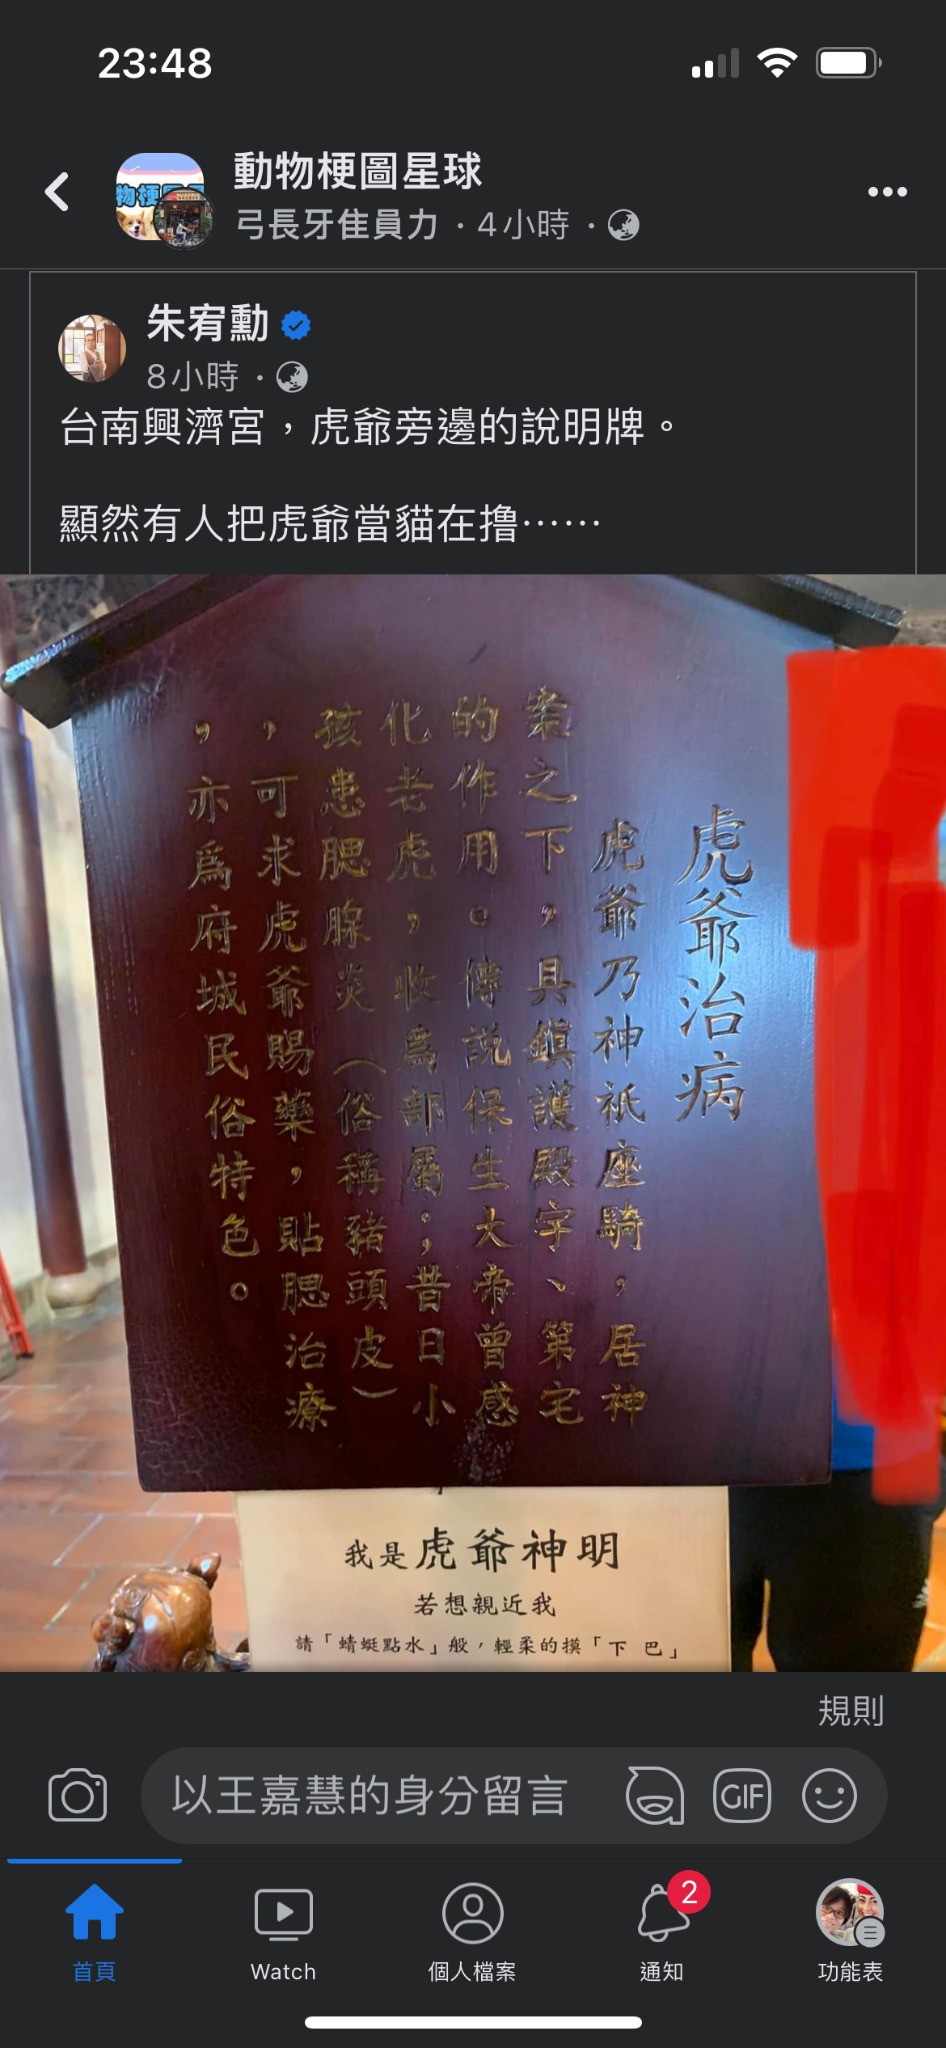 23:48
動物梗圖星球
弓長牙隹員力 · 4小時 ·
朱宥勳
8小時 ·
台南興濟宮，虎爺旁邊的說明牌。
顯然有人把虎爺當貓在擼⋯⋯
虎爺治病
虎爺乃神祇座騎，居神
案之下，具鎮護殿宇、第宅
的作用。傳說保生大帝曾感
化老虎，收為部屬；昔日小
孩患腮腺炎（俗稱豬頭皮）
，可求虎爺賜藥，貼腮治療
，亦為府城民俗特色。
我是虎爺神明
若想親近我
請「蜻蜓點水」般，輕柔的摸「下 巴」
規則
以王嘉慧的身分留言
GIF
2
首頁
Watch
個人檔案
通知
功能表